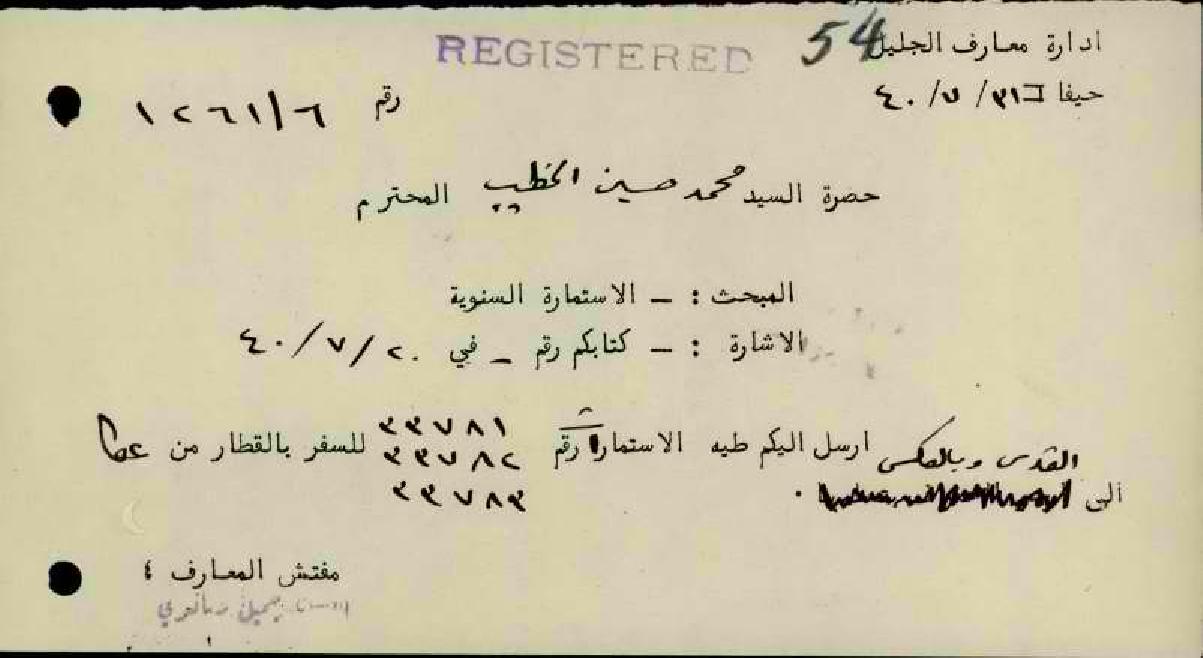 ادارة معارف الجليل
54
REGISTERED
حيفا ٣١/٧/٤٠
رقم ١٢٦١/٦
حضرة السيد محمد حسين الخطيب المحترم
المبحث : ـ الاستمارة السنوية
الاشارة : ـ كتابكم رقم ـ في ٢٠/٧/٤٠
ارسل اليكم طيه الاستمارات رقم ٣٣٧٨١ ٣٣٧٨٢ ٣٣٧٨٣ للسفر بالقطار من عكا
الى القدس وبالعكس .
مفتش المعارف ٤